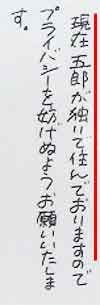 現在五郎が独いで住んでおりますので
プライバシーを妨げぬようお願いいたしま
す。